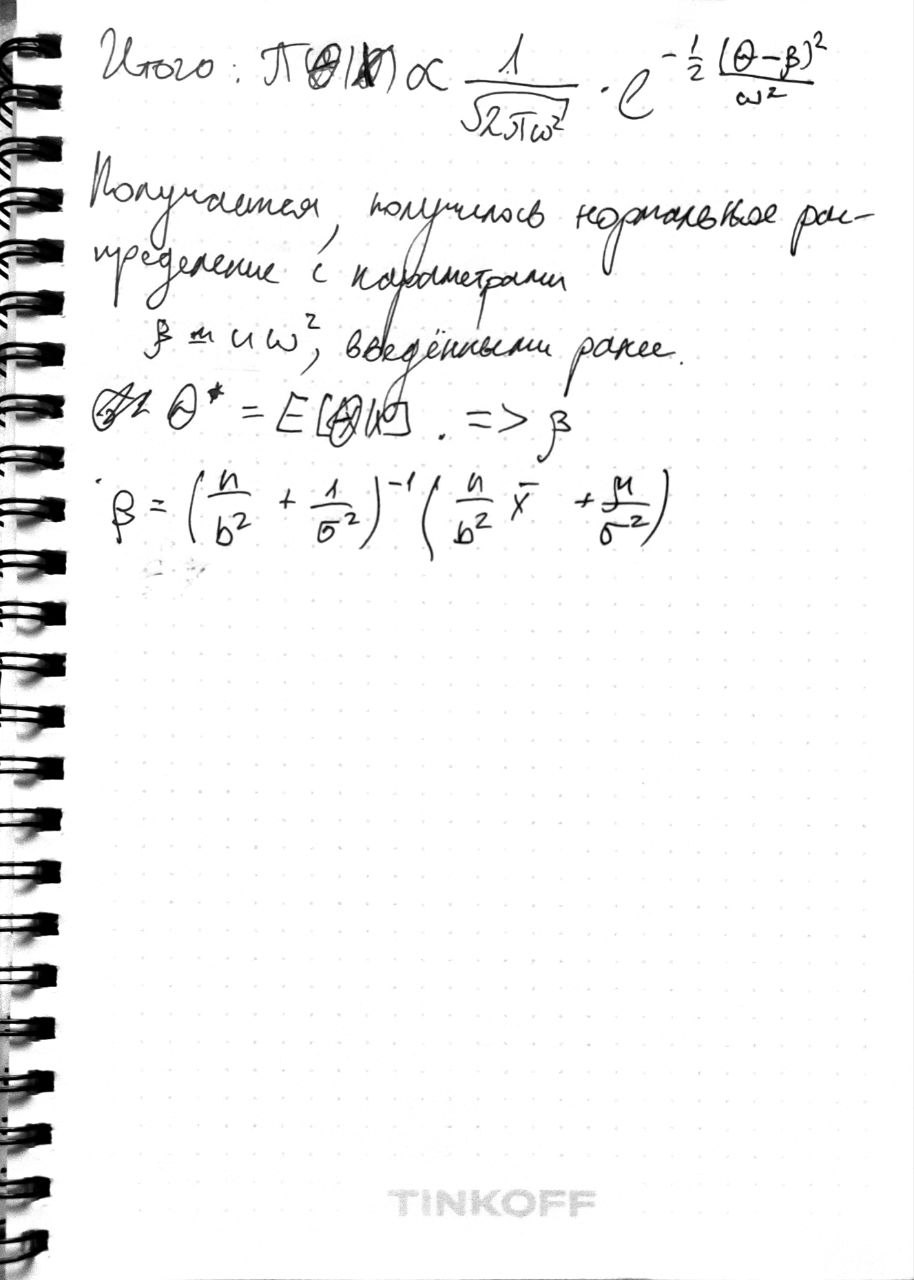 Итого: π(θ|X) ∝ 1/√(2πω²) · e^(-1/2 (θ-β)²/ω²)
Получается, получилось нормальное рас-
пределение с параметрами
β и ω², введёнными ранее.
θ* = E[θ|X]. => β
β = (n/b² + 1/σ²)⁻¹ (n/b² x̄ + μ/σ²)
TINKOFF